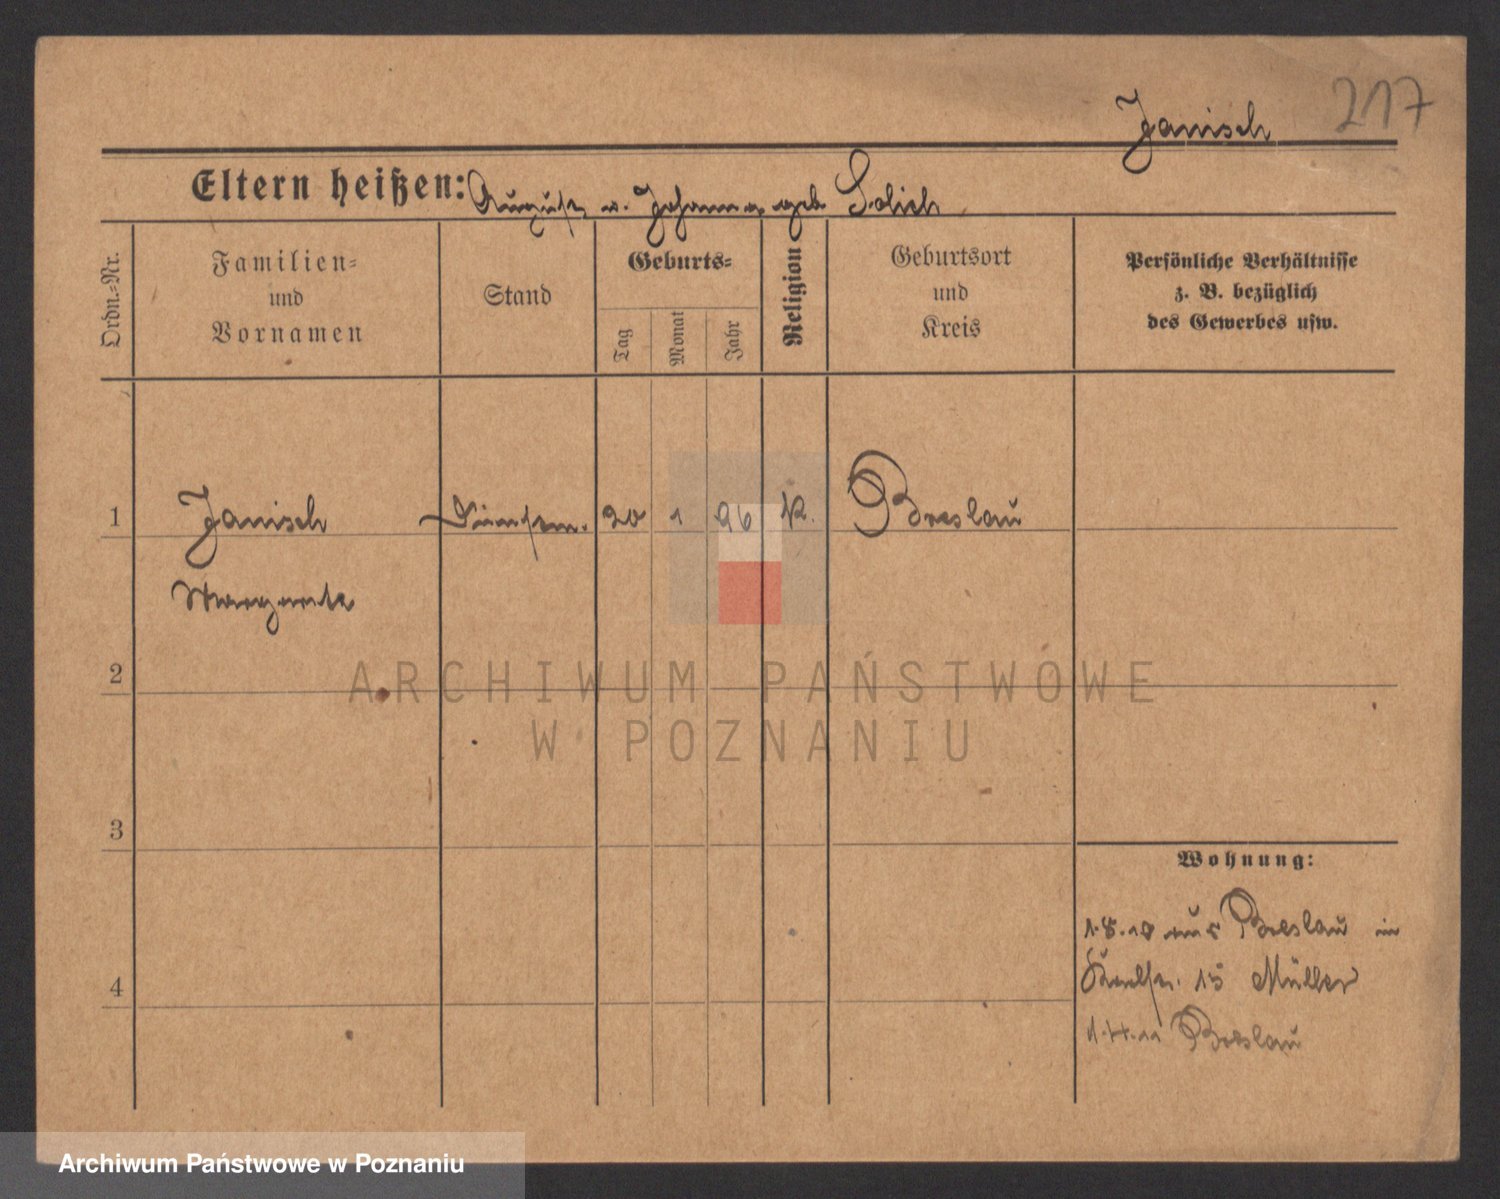 217
Janisch
Eltern heißen: August u. Johanna geb Solich
Ordn.=Nr.
Familien=
und
Vornamen
Stand
Geburts=
Tag
Monat
Jahr
Religion
Geburtsort
und
Kreis
Persönliche Verhältnisse
z. B. bezüglich
des Gewerbes usw.
1 Janisch 20 1 96 K. Breslau
Margarete
2
3
4
Wohnung:
1.8.10 aus Breslau in
15 Müller
1.4.11 Breslau
ARCHIWUM PAŃSTWOWE
W POZNANIU
Archiwum Państwowe w Poznaniu